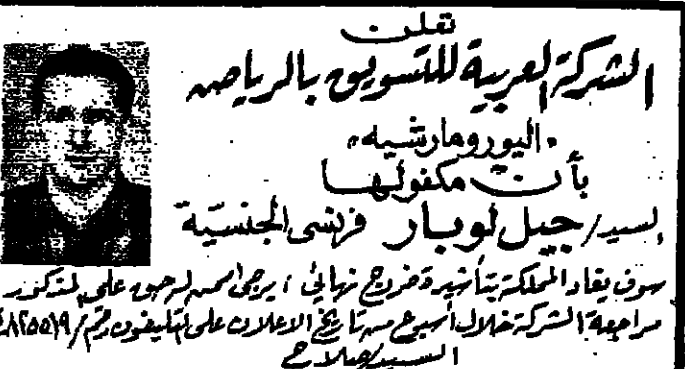 تعلن
الشركة العربية للتسويق بالرياض
"اليورومارشيه"
بأن مكفولها
السيد/ جيل لوبار فرنسي الجنسية
سوف يغادر المملكة بتأشيرة خروج نهائي ، يرجى ممن له حق على المذكور
مراجعة الشركة خلال أسبوع من تاريخ الاعلان على تليفون رقم/
السيد/ صلاح